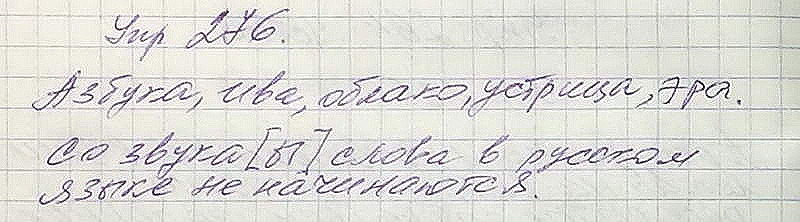 Упр 276.
Азбука, ива, облако, устрица, эра.
Со звука [ы] слова в русском
языке не начинаются.